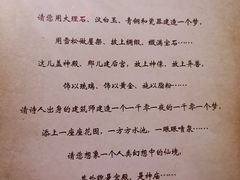 请您用大理石、汉白玉、青铜和瓷器建造一个梦，
用雪松做屋架，披上绸缎，缀满宝石……
这儿盖神殿，那儿建后宫，放上神像，放上异兽，
饰以琉璃，饰以黄金，施以脂粉……
请诗人出身的建筑师建造一千零一夜的一千零一个梦，
添上一座座花园，一方方水池，一眼眼喷泉……
请您想象一个人类幻想中的仙境，
其外貌是宫殿，是神庙……